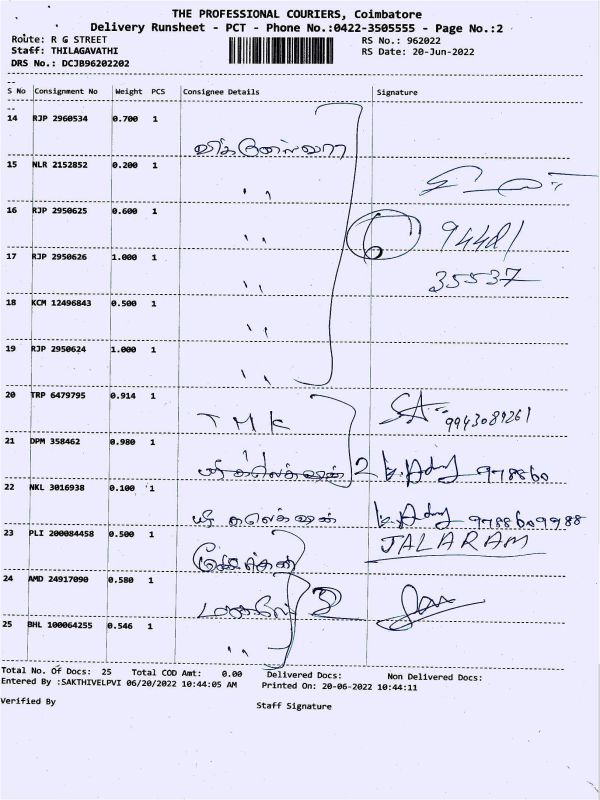 THE PROFESSIONAL COURIERS, Coimbatore
Delivery Runsheet - PCT - Phone No.:0422-3505555 - Page No.:2
Route: R G STREET
RS No.: 962022
Staff: THILAGAVATHI
RS Date: 20-Jun-2022
DRS No.: DCJB96202202
S No Consignment No Weight PCS Consignee Details Signature
14 RJP 2960534 0.700 1
15 NLR 2152852 0.200 1
" 
16 RJP 2950625 0.600 1
" 94421
17 RJP 2950626 1.000 1
" 35537
18 KCM 12496843 0.500 1
"
19 RJP 2950624 1.000 1
"
20 TRP 6479795 0.914 1
T M K 9943089261
21 DPM 358462 0.980 1
2 978860
22 NKL 3016938 0.100 1
9788609988
23 PLI 200084458 0.500 1 JALARAM
24 AMD 24917090 0.580 1
2
25 BHL 100064255 0.546 1
"
Total No. Of Docs: 25 Total COD Amt: 0.00 Delivered Docs: Non Delivered Docs:
Entered By :SAKTHIVELPVI 06/20/2022 10:44:05 AM Printed On: 20-06-2022 10:44:11
Verified By
Staff Signature